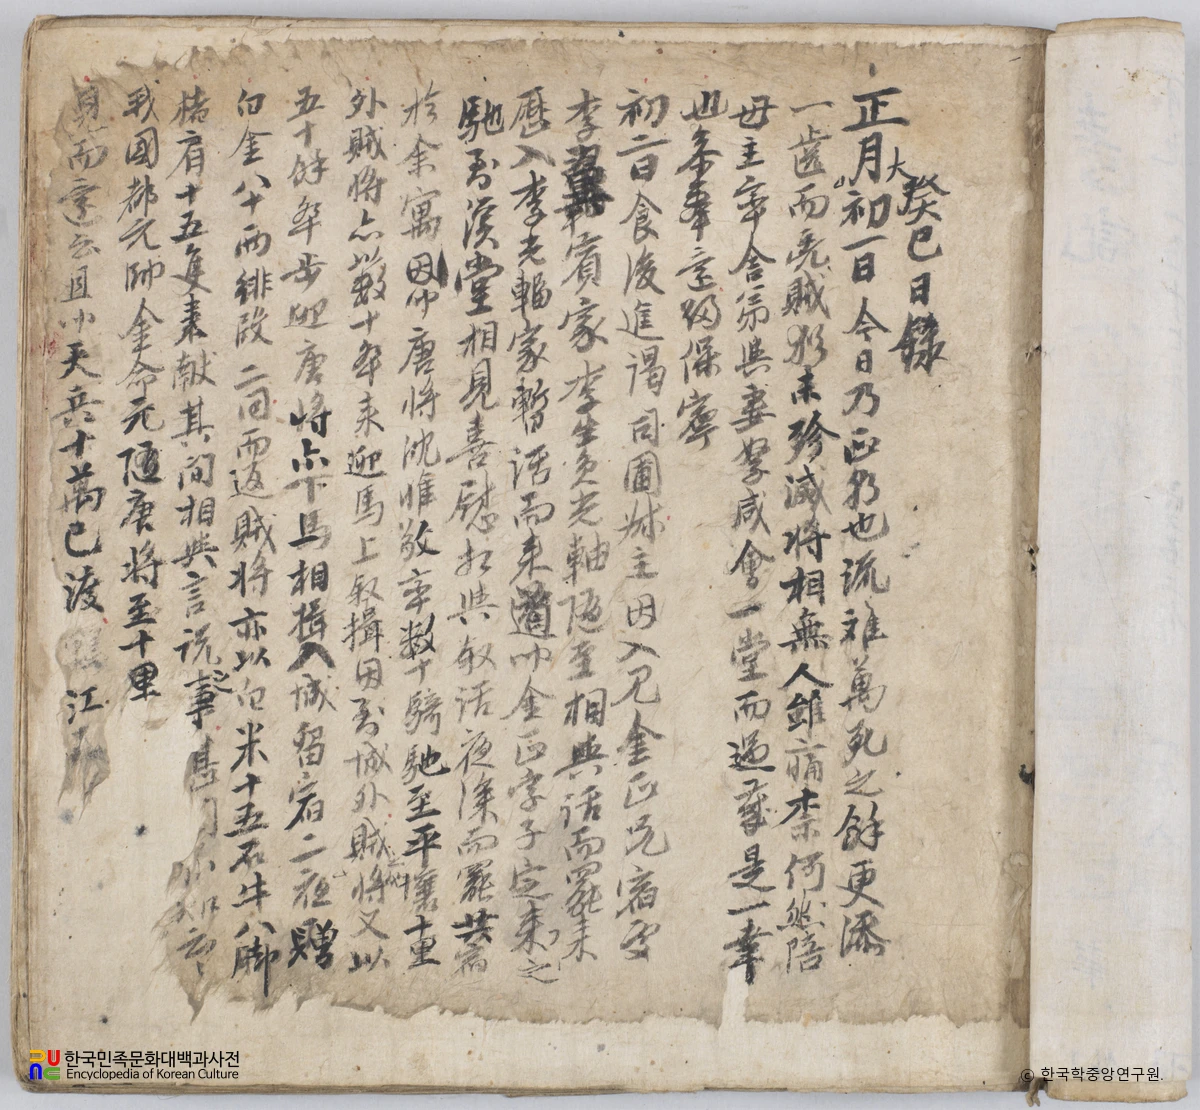 癸巳日錄
正月大初一日今日乃正朝也流離萬死之餘更添
一齒而兇賊猶未殄滅將相無人雖痛柰何然陪
母主率舍弟與妻孥咸會一堂而過歲是一幸
也奉還歸保寧
初二日食後進謁同圃叔主因入見金正兄宿
李賓家李生員光軸隨至相與話而罷來
歷入李光輻家暫話而來聞金正字子定來
馳到溪堂相見喜慰相與敍話夜深而罷共宿
於余寓因聞唐將沈惟敬率數十騎馳至平壤十里
外賊將亦以數十卒來迎馬上敍揖因到城外賊將又以
五十餘卒步迎唐將亦下馬相揖入城留宿二夜贈
白金八十兩緋段二同而返賊將亦以白米十五石牛八脚
猪肩十五隻來獻其間相與言說之事
我國都元帥金命元隨唐將至十里
見而還云且聞天兵十萬已渡江
한국민족문화대백과사전
Encyclopedia of Korean Culture
© 한국학중앙연구원.